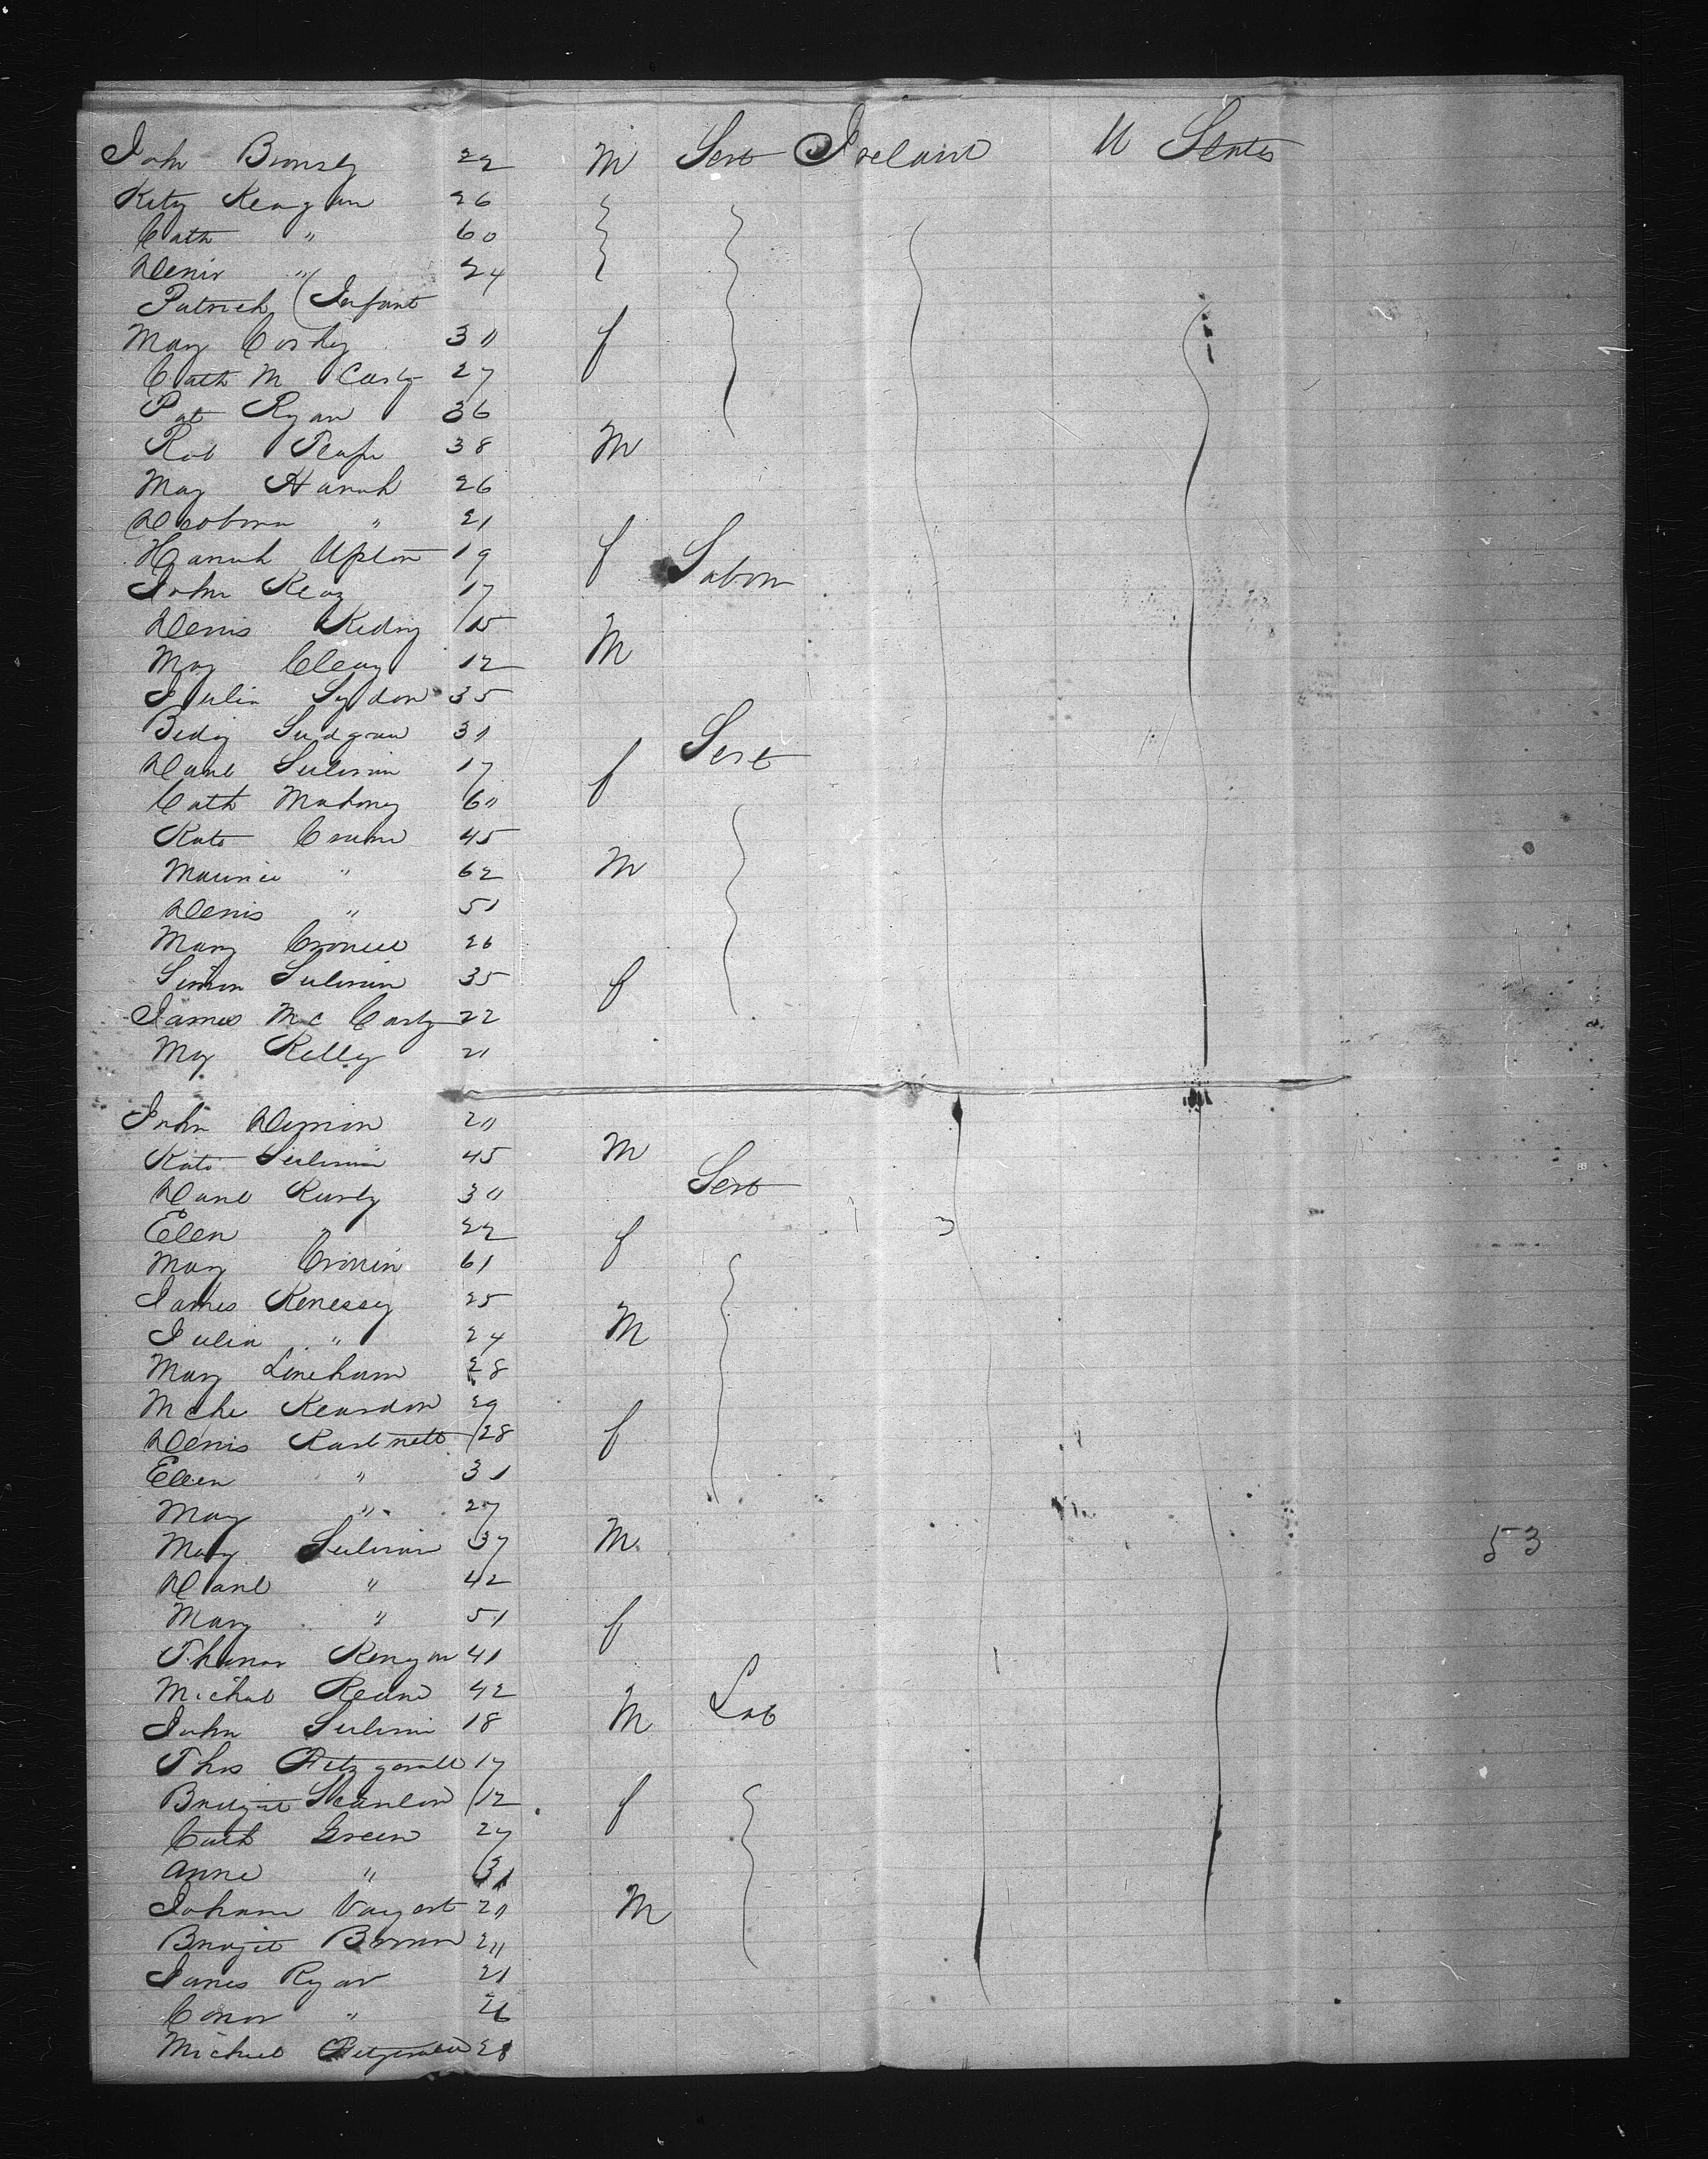 John 22 M Sert Ireland U States
Kity Keagan 26
Cath " 60
Denis " 24
Patrick (Infant
May Corky 30 f
Cath M Carty 27
Pat Ryan 36
Rob 38 M
May Hanah 26
" 21
Hanah Upton 19 f Labor
John Reay 17
Denis 15
May Cleary 12 M
Julia Sydon 35
Bedy 31 Sert
Danl Sulivan 17 f
Cath Mahony 60
Kate 45
Maurice " 62 M
Denis " 51
Mary 26
Simon Sulivan 35 f
James Mc Carty 22
May Kelly 21
John 20
Kate Sulivan 45 M
Danl 30 Sert
Elen " 22 f
May Cronin 61
James Kenessy 25
Julia " 24 M
Mary Lineham 28
Mche Reardon 29
Denis 28 f
Ellen " 31
May " 27
Mary Sulivan 37 M 53
Danl " 42
Mary " 51 f
Thomas Kengan 41
Michal 42
John Sulivan 18 M Lab
Thos Fitzgerald 17
Bridget Scanlon 12 f
Cath Green 27
Anne " 31
Johann 20 M
Bridgit 20
James Ryan 21
Conor " 26
Michael Fitzgerald 28